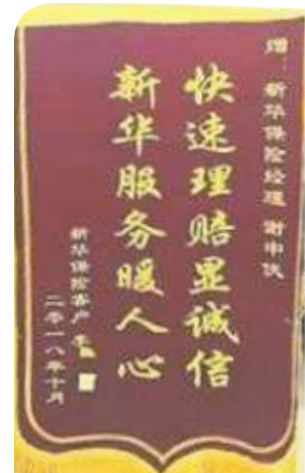 赠：新华保险经理 谢申伏
快速理赔显诚信
新华服务暖人心
新华保险客户 李
二零一八年十月